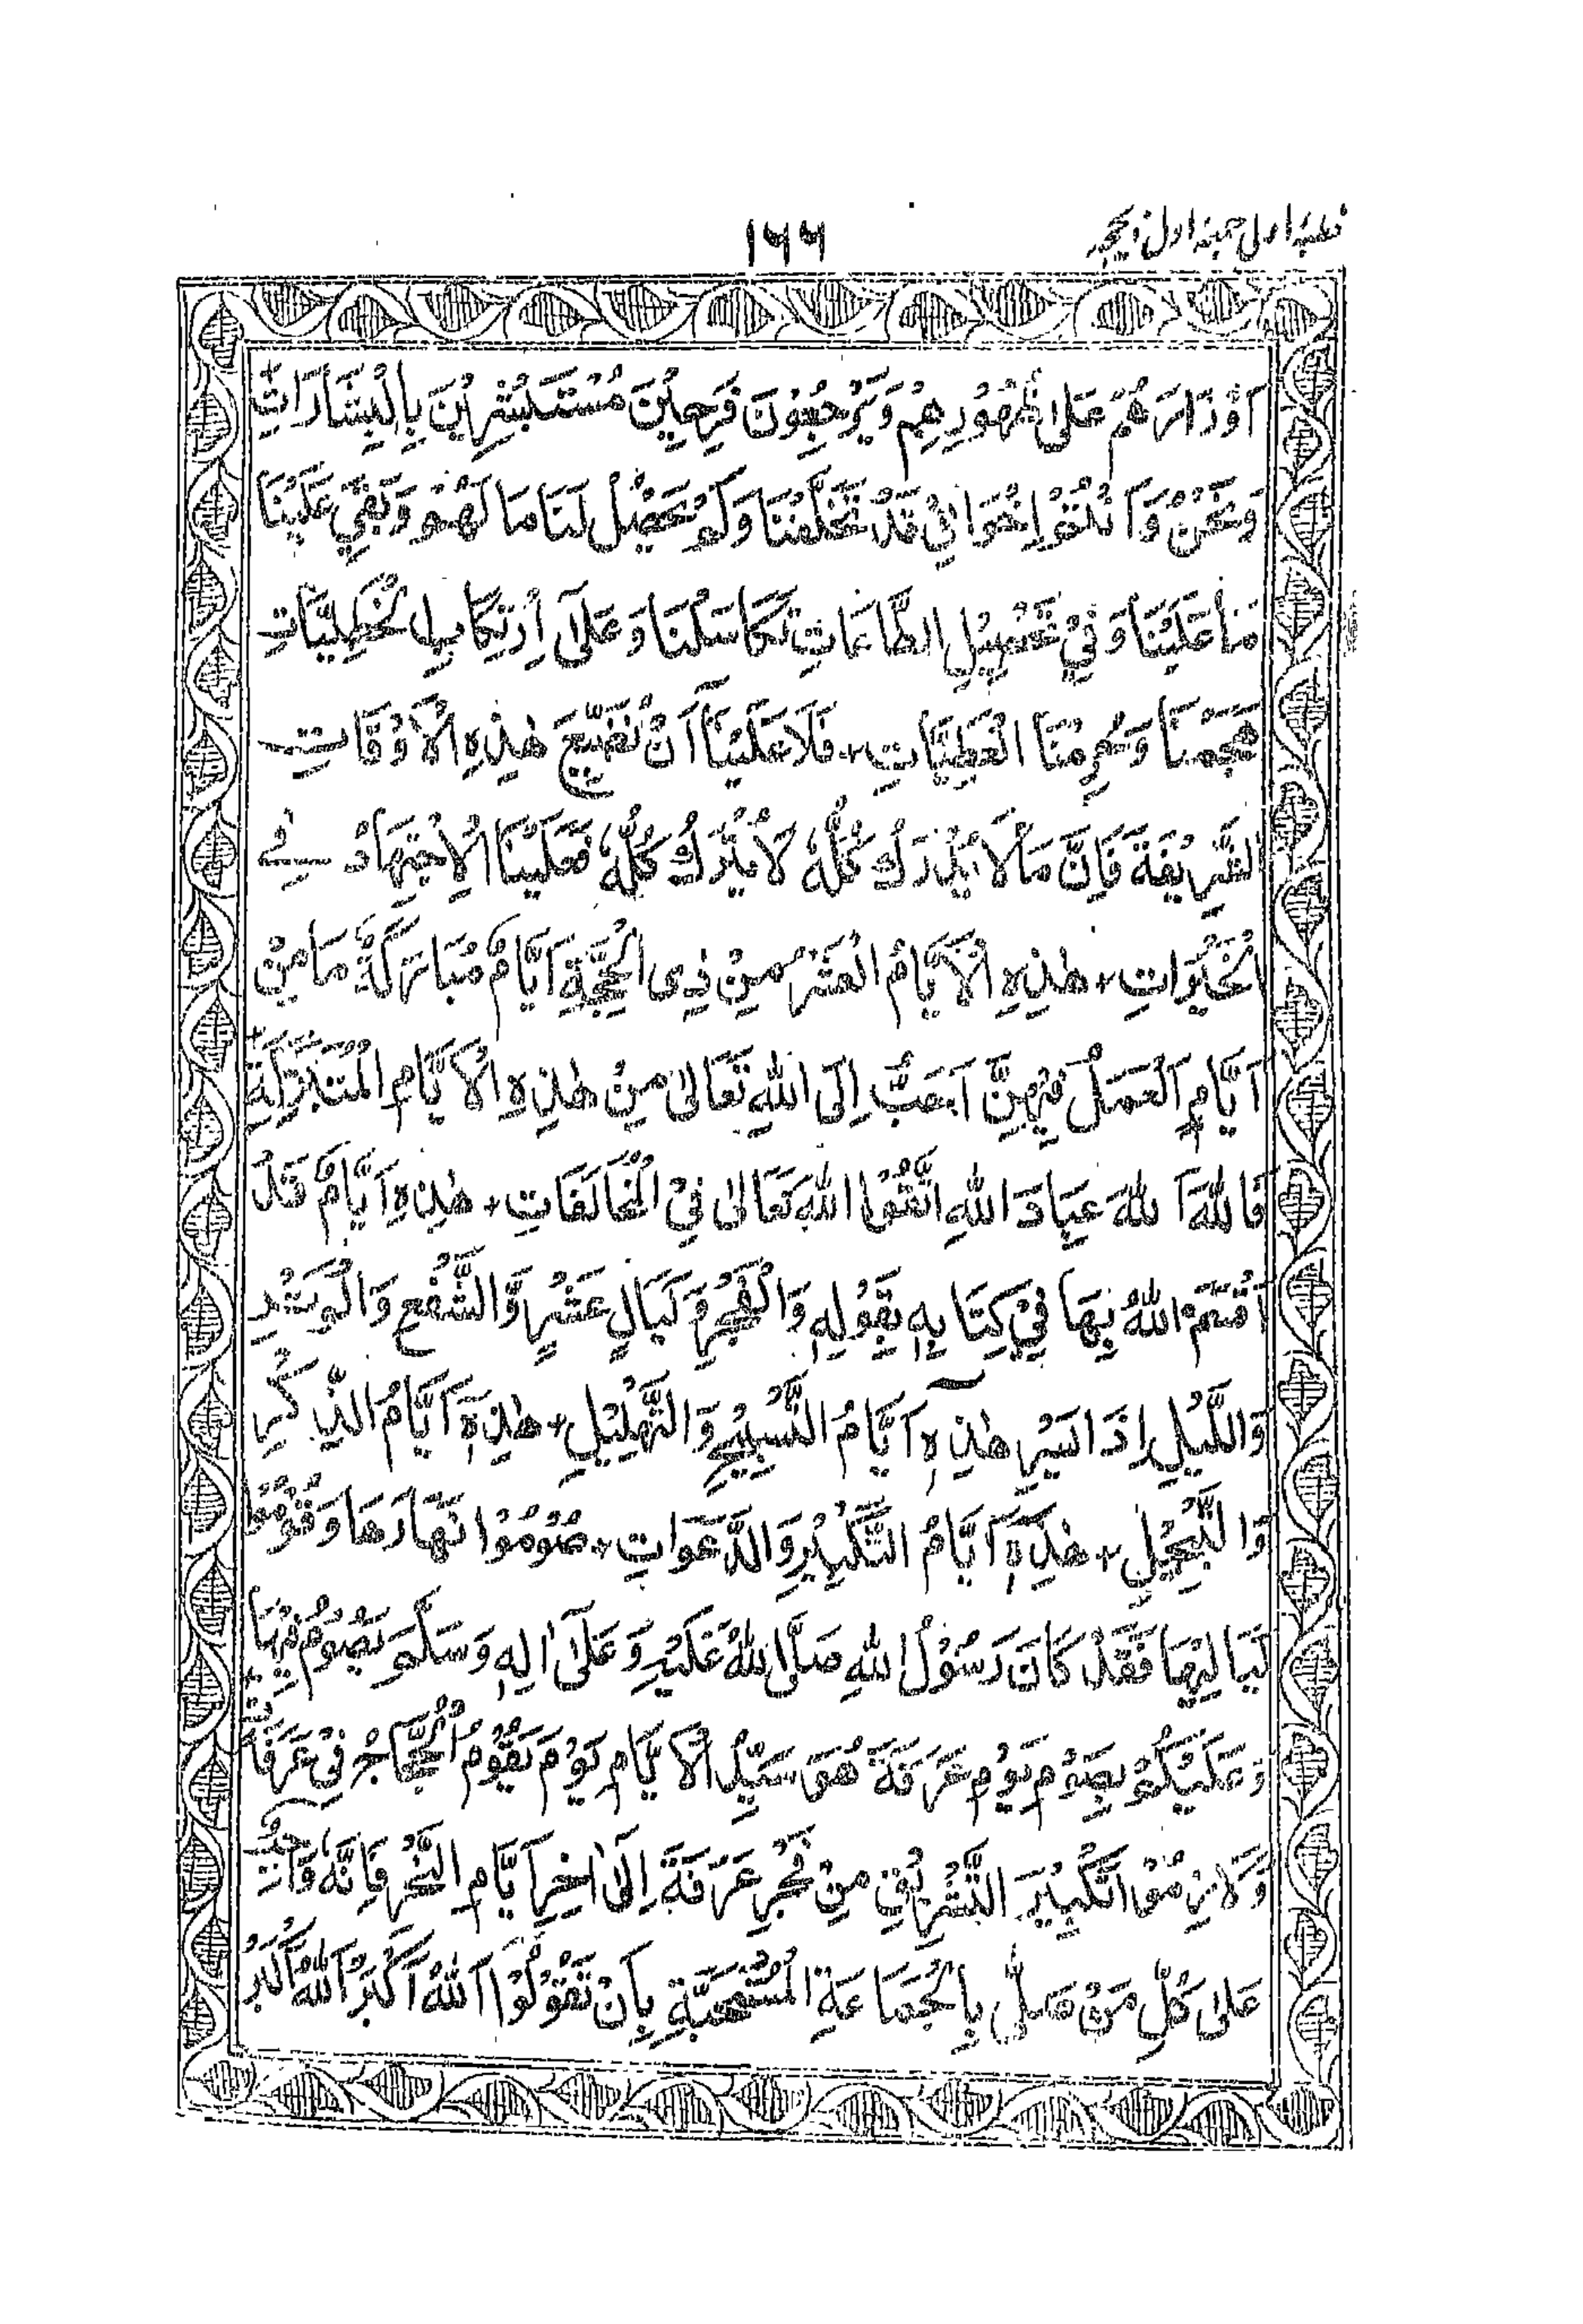 خطبۂ اولی جمعۂ اول ذیحجہ
۱۶۶
اَوْزَارَهُمْ عَلٰى ظُهُوْرِهِمْ وَيَرْجِعُوْنَ فَرِحِيْنَ مُسْتَبْشِرِيْنَ بِالْبِشَارَاتِ +
وَنَحْنُ وَاَنْتُمْ اِخْوَانِيْ قَدْ تَخَلَّفْنَا وَلَمْ يَحْصُلْ لَنَا مَا لَهُمْ وَبَقِيَ عَلَيْنَا
مَا عَلَيْنَا وَفِيْ تَحْصِيْلِ الطَّاعَاتِ تَكَاسَلْنَا وَعَلٰى اِرْتِكَابِ الْخَطِيْئَاتِ
هَجَمْنَا وَحُرِمْنَا الْعَطِيَّاتِ + فَلَا عَلَيْنَا اَنْ نُضَيِّعَ هٰذِهِ الْاَوْقَاتِ
الشَّرِيْفَةَ فَاِنَّ مَا لَا يُدْرَكُ كُلُّهٗ لَا يُتْرَكُ كُلُّهٗ فَعَلَيْنَا الْاِجْتِهَادُ فِے
الْخَيْرَاتِ + هٰذِهِ الْاَيَّامُ الْعَشْرُ مِنْ ذِى الْحِجَّةِ اَيَّامٌ مُبَارَكَةٌ مَا مِنْ
اَيَّامٍ اَلْعَمَلُ فِيْهِنَّ اَحَبُّ اِلَى اللهِ تَعَالٰى مِنْ هٰذِهِ الْاَيَّامِ الْمُتَبَرَّكَةِ +
فَاللهَ اَللهَ عِبَادَ اللهِ اتَّقُوا اللهَ تَعَالٰى فِى الْمُخَالَفَاتِ + هٰذِهِ اَيَّامٌ قَدْ
اَقْسَمَ اللهُ بِهَا فِيْ كِتَابِهٖ بِقَوْلِهٖ وَالْفَجْرِ وَلَيَالٍ عَشْرٍ وَّالشَّفْعِ وَالْوَتْرِ
وَاللَّيْلِ اِذَا يَسْرِ هٰذِهٖ اَيَّامُ التَّسْبِيْحِ وَالتَّهْلِيْلِ + هٰذِهٖ اَيَّامُ الذِّكْرِ
وَالتَّبْجِيْلِ + هٰذِهٖ اَيَّامُ التَّكْبِيْرِ وَالدَّعَوَاتِ + صُوْمُوْا نَهَارَهَا وَقُوْمُوْا
لَيَالِيْهَا فَقَدْ كَانَ رَسُوْلُ اللهِ صَلَّى اللهُ عَلَيْهِ وَعَلٰى اٰلِهٖ وَسَلَّمَ يَصُوْمُ فِيْهَا +
وَعَلَيْكُمْ بِصَوْمِ يَوْمِ عَرَفَةَ هُوَ سَيِّدُ الْاَيَّامِ يَوْمَ يَقُوْمُ الْحُجَّاجُ فِيْ عَرَفَاتٍ
وَلَازِمُوْا تَكْبِيْرَ التَّشْرِيْقِ مِنْ فَجْرِ عَرَفَةَ اِلٰى اٰخِرِ اَيَّامِ النَّحْرِ فَاِنَّهٗ وَاجِبٌ
عَلٰى كُلِّ مَنْ صَلّٰى بِالْجَمَاعَةِ الْمُسْتَحَبَّةِ بِاَنْ تَقُوْلُوْا اَللهُ اَكْبَرُ اَللهُ اَكْبَرُ